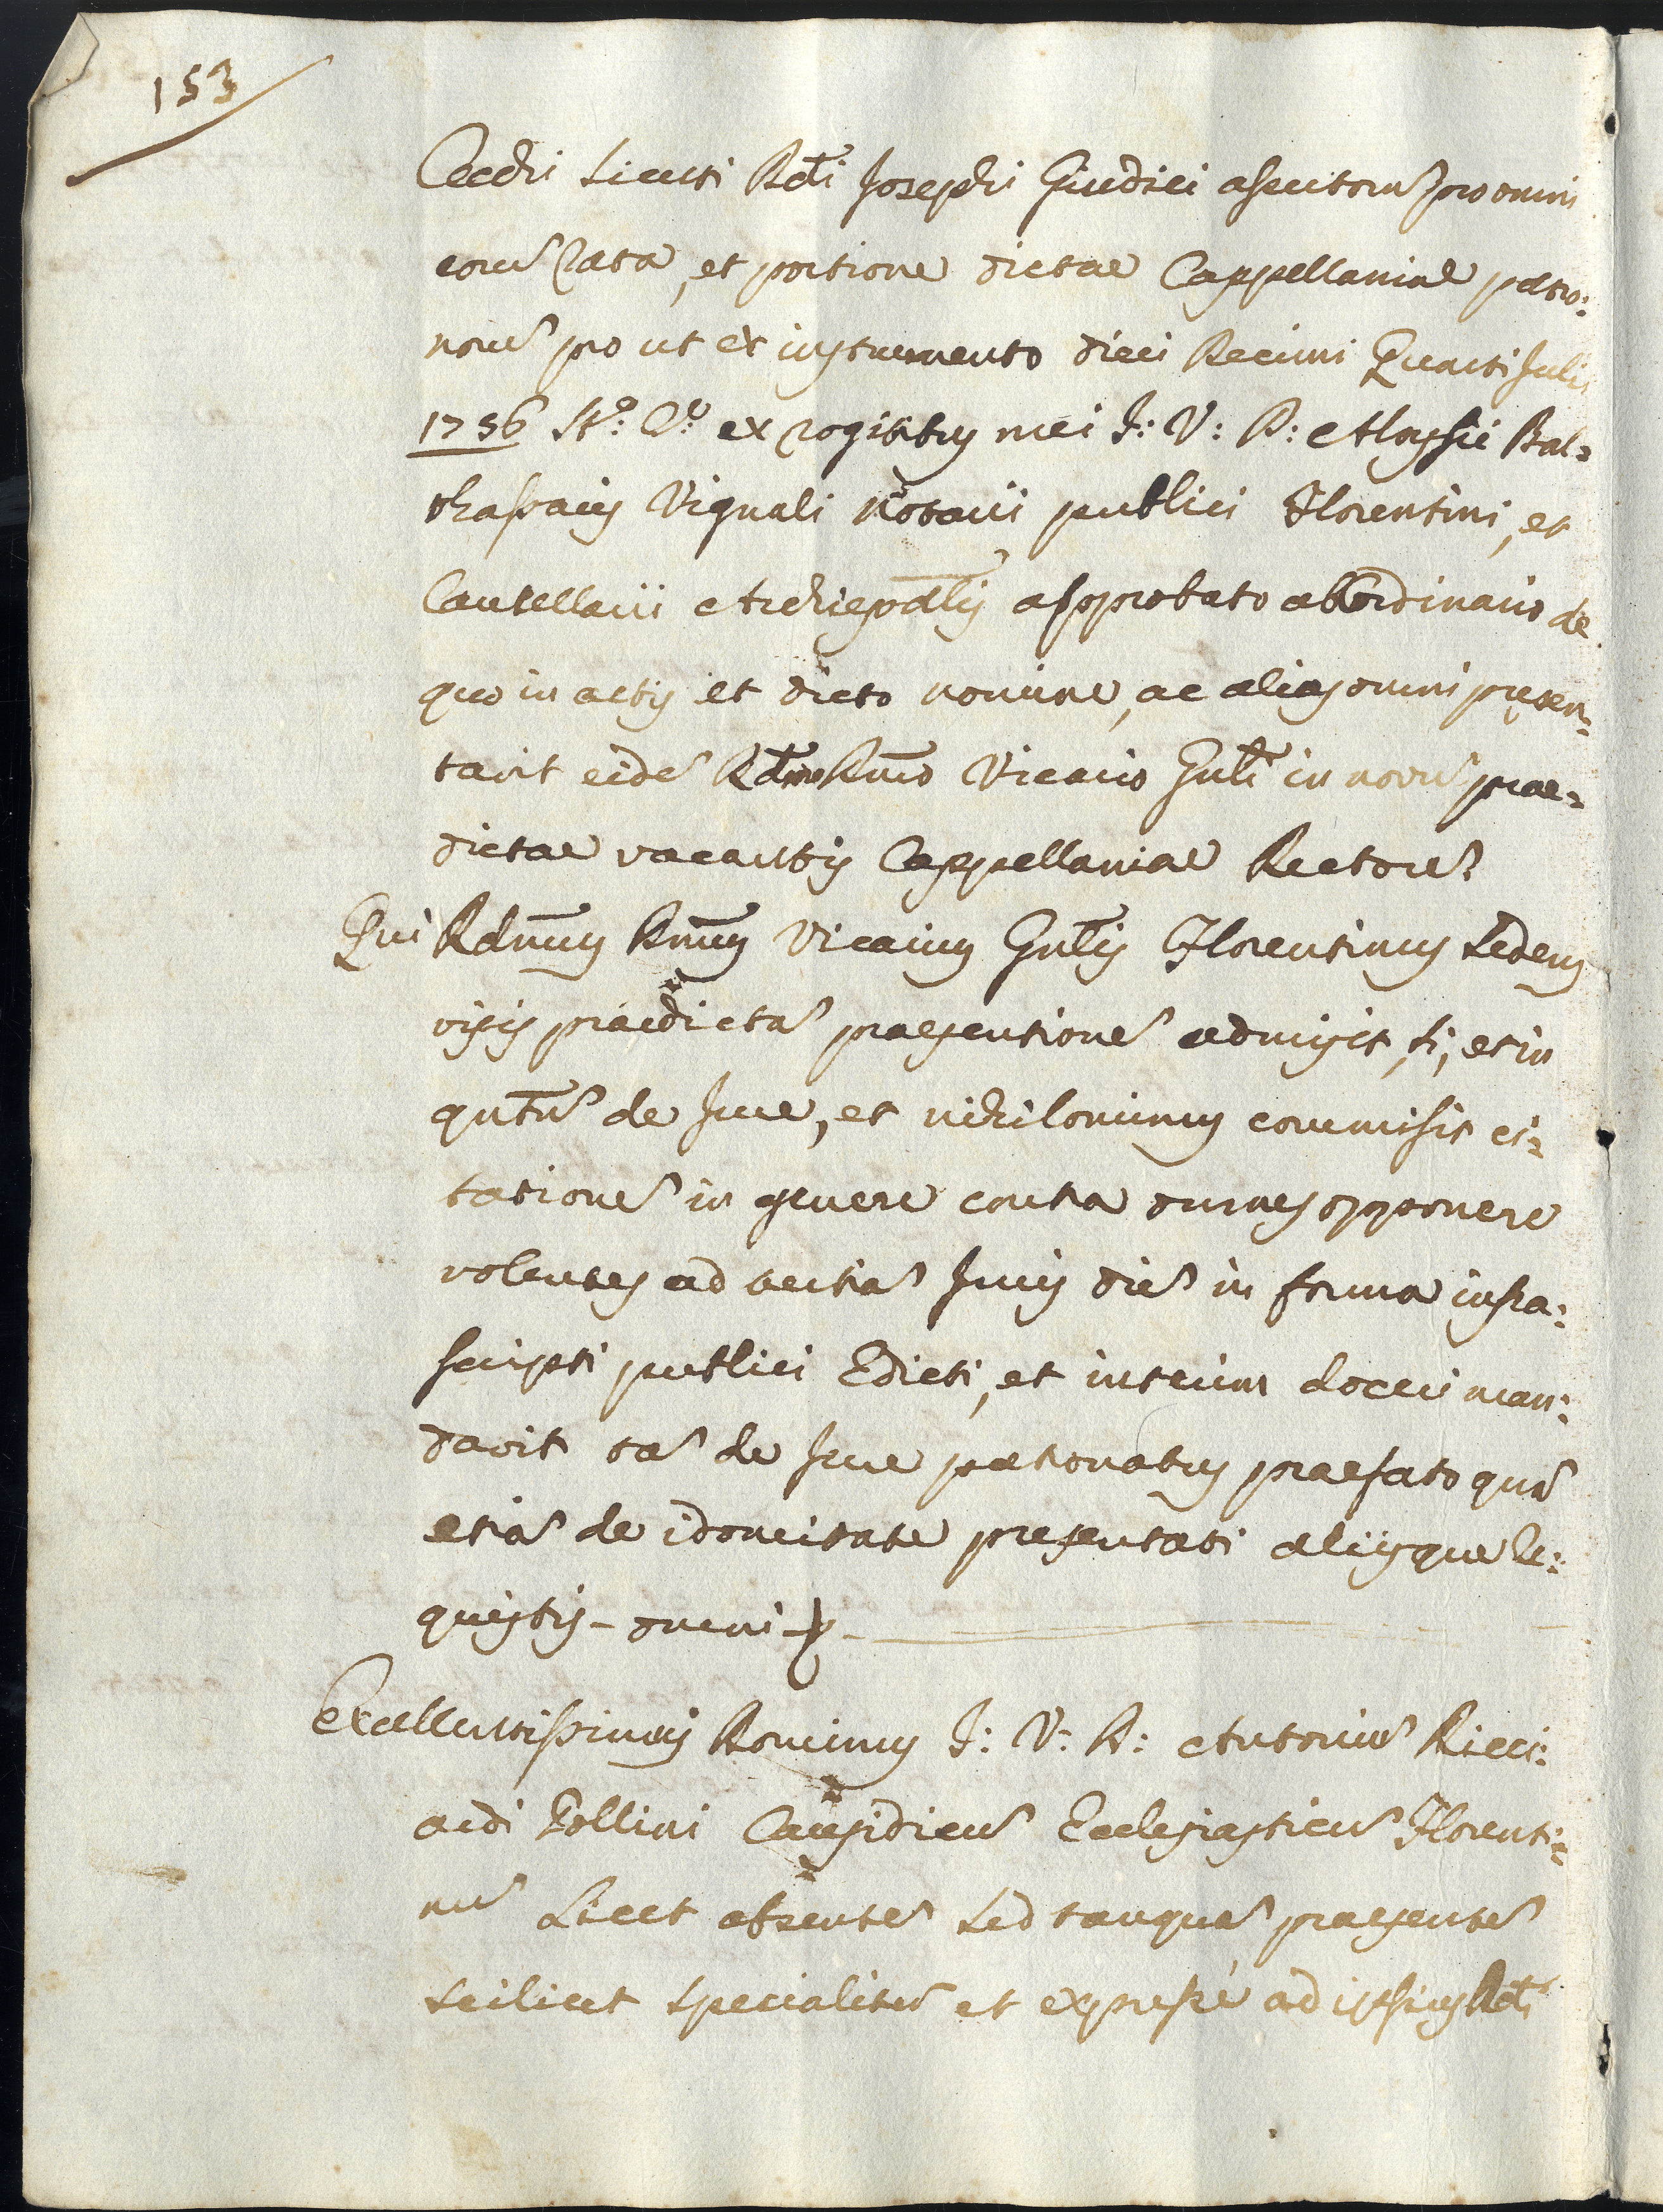 153
Cechi Licuti Rdi Josephi Giudici assertorũ pro omni
eorũ rata, et portione dictae Cappellaniae patro:
norũ pro ut ex instrumento diei Decimi Quarti Julii
1756 St: Co: ex rogitibus mei J: V: D: Aloysii Bal=
thassaris Vignali Notarii publici Florentini, et
Cancellarii Archiepālis approbato ab Ordinario de
quo in actis et dicto nomine, ac alias omni presen=
tavit eidẽ Rdmo Rm̃o Vicario Gnli in novũ prae=
dictae vacantis Cappellaniae Rectorẽ
Qui Rdmus Rm̃us Vicarius Gnlis Florentinus Sedens
visis praedictã praesentionẽ admisit, si, et in
qntũ de Jure, et nihilominus commisit ci=
tationẽ in genere contra omnes opponere
volentes ad tertiã Juris diẽ in forma infra:
scripti publici Edicti, et interim doceri man:
davit tã de Jure patronatus praefato quã
etiã de idoneitate presentati aliisque re:
quisitis - omni
Excellentissimus Dominus J: V: D: Antoniũ Ricci:
ardi Pollini Causidicũ Ecclesiasticũ Florenti=
nũ Licet absentẽ sed tanquã praesentẽ
scilicet specialitẽr et expresse ad ipsius Rdi